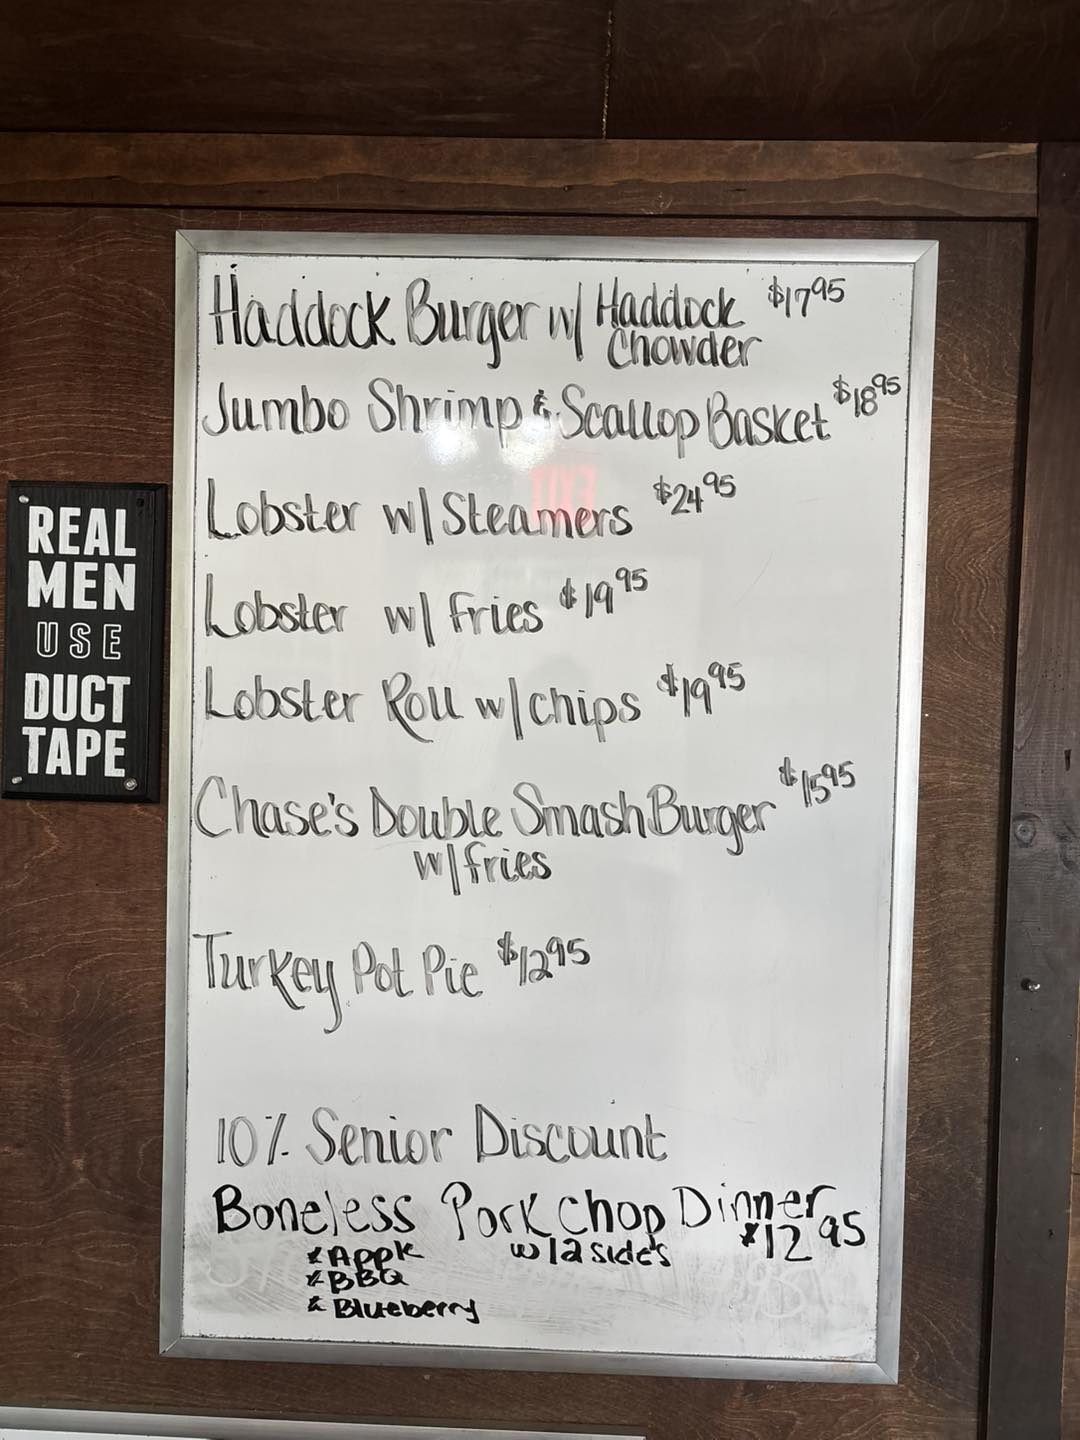 Haddock Burger w/ Haddock Chowder $17.95
Jumbo Shrimp & Scallop Basket $18.95
Lobster w/ Steamers $24.95
EXIT
Lobster w/ Fries $19.95
Lobster Roll w/ Chips $19.95
Chase's Double Smash Burger $15.95
w/ fries
Turkey Pot Pie $12.95
10% Senior Discount
Boneless Pork Chop Dinner $12.95
w/ 2 side's
* Apple
* BBQ
* Blueberry
REAL
MEN
USE
DUCT
TAPE